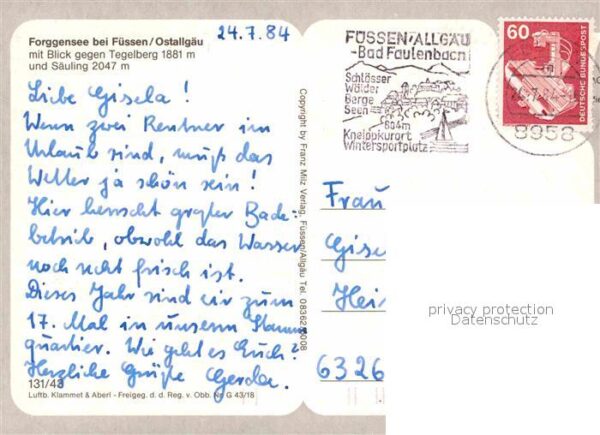 Forggensee bei Füssen/Ostallgäu
mit Blick gegen Tegelberg 1881 m
und Säuling 2047 m
24.7.84
Liebe Gisela!
Wenn zwei Rentner im
Urlaub sind, muß das
Wetter ja schön sein!
Hier herrscht großer Bade-
betrieb, obwohl das Wasser
noch recht frisch ist.
Dieses Jahr sind wir zum
17. Mal in unserem Stamm
quartier. Wie geht es Euch?
Herzliche Grüße Gerda.
131/43
Luftb. Klammet & Aberl - Freigeg. d. d. Reg. v. Obb. Nr. G 43/18
Copyright by Franz Milz Verlag, Füssen/Allgäu Tel.
FÜSSEN/ALLGÄU
-Bad Faulenbach
Schlösser
Wälder
Berge
Seen
804m
Kneippkurort
Wintersportplatz
60
DEUTSCHE BUNDESPOST
8958
Frau
Gise
Hei
6326
privacy protection
Datenschutz